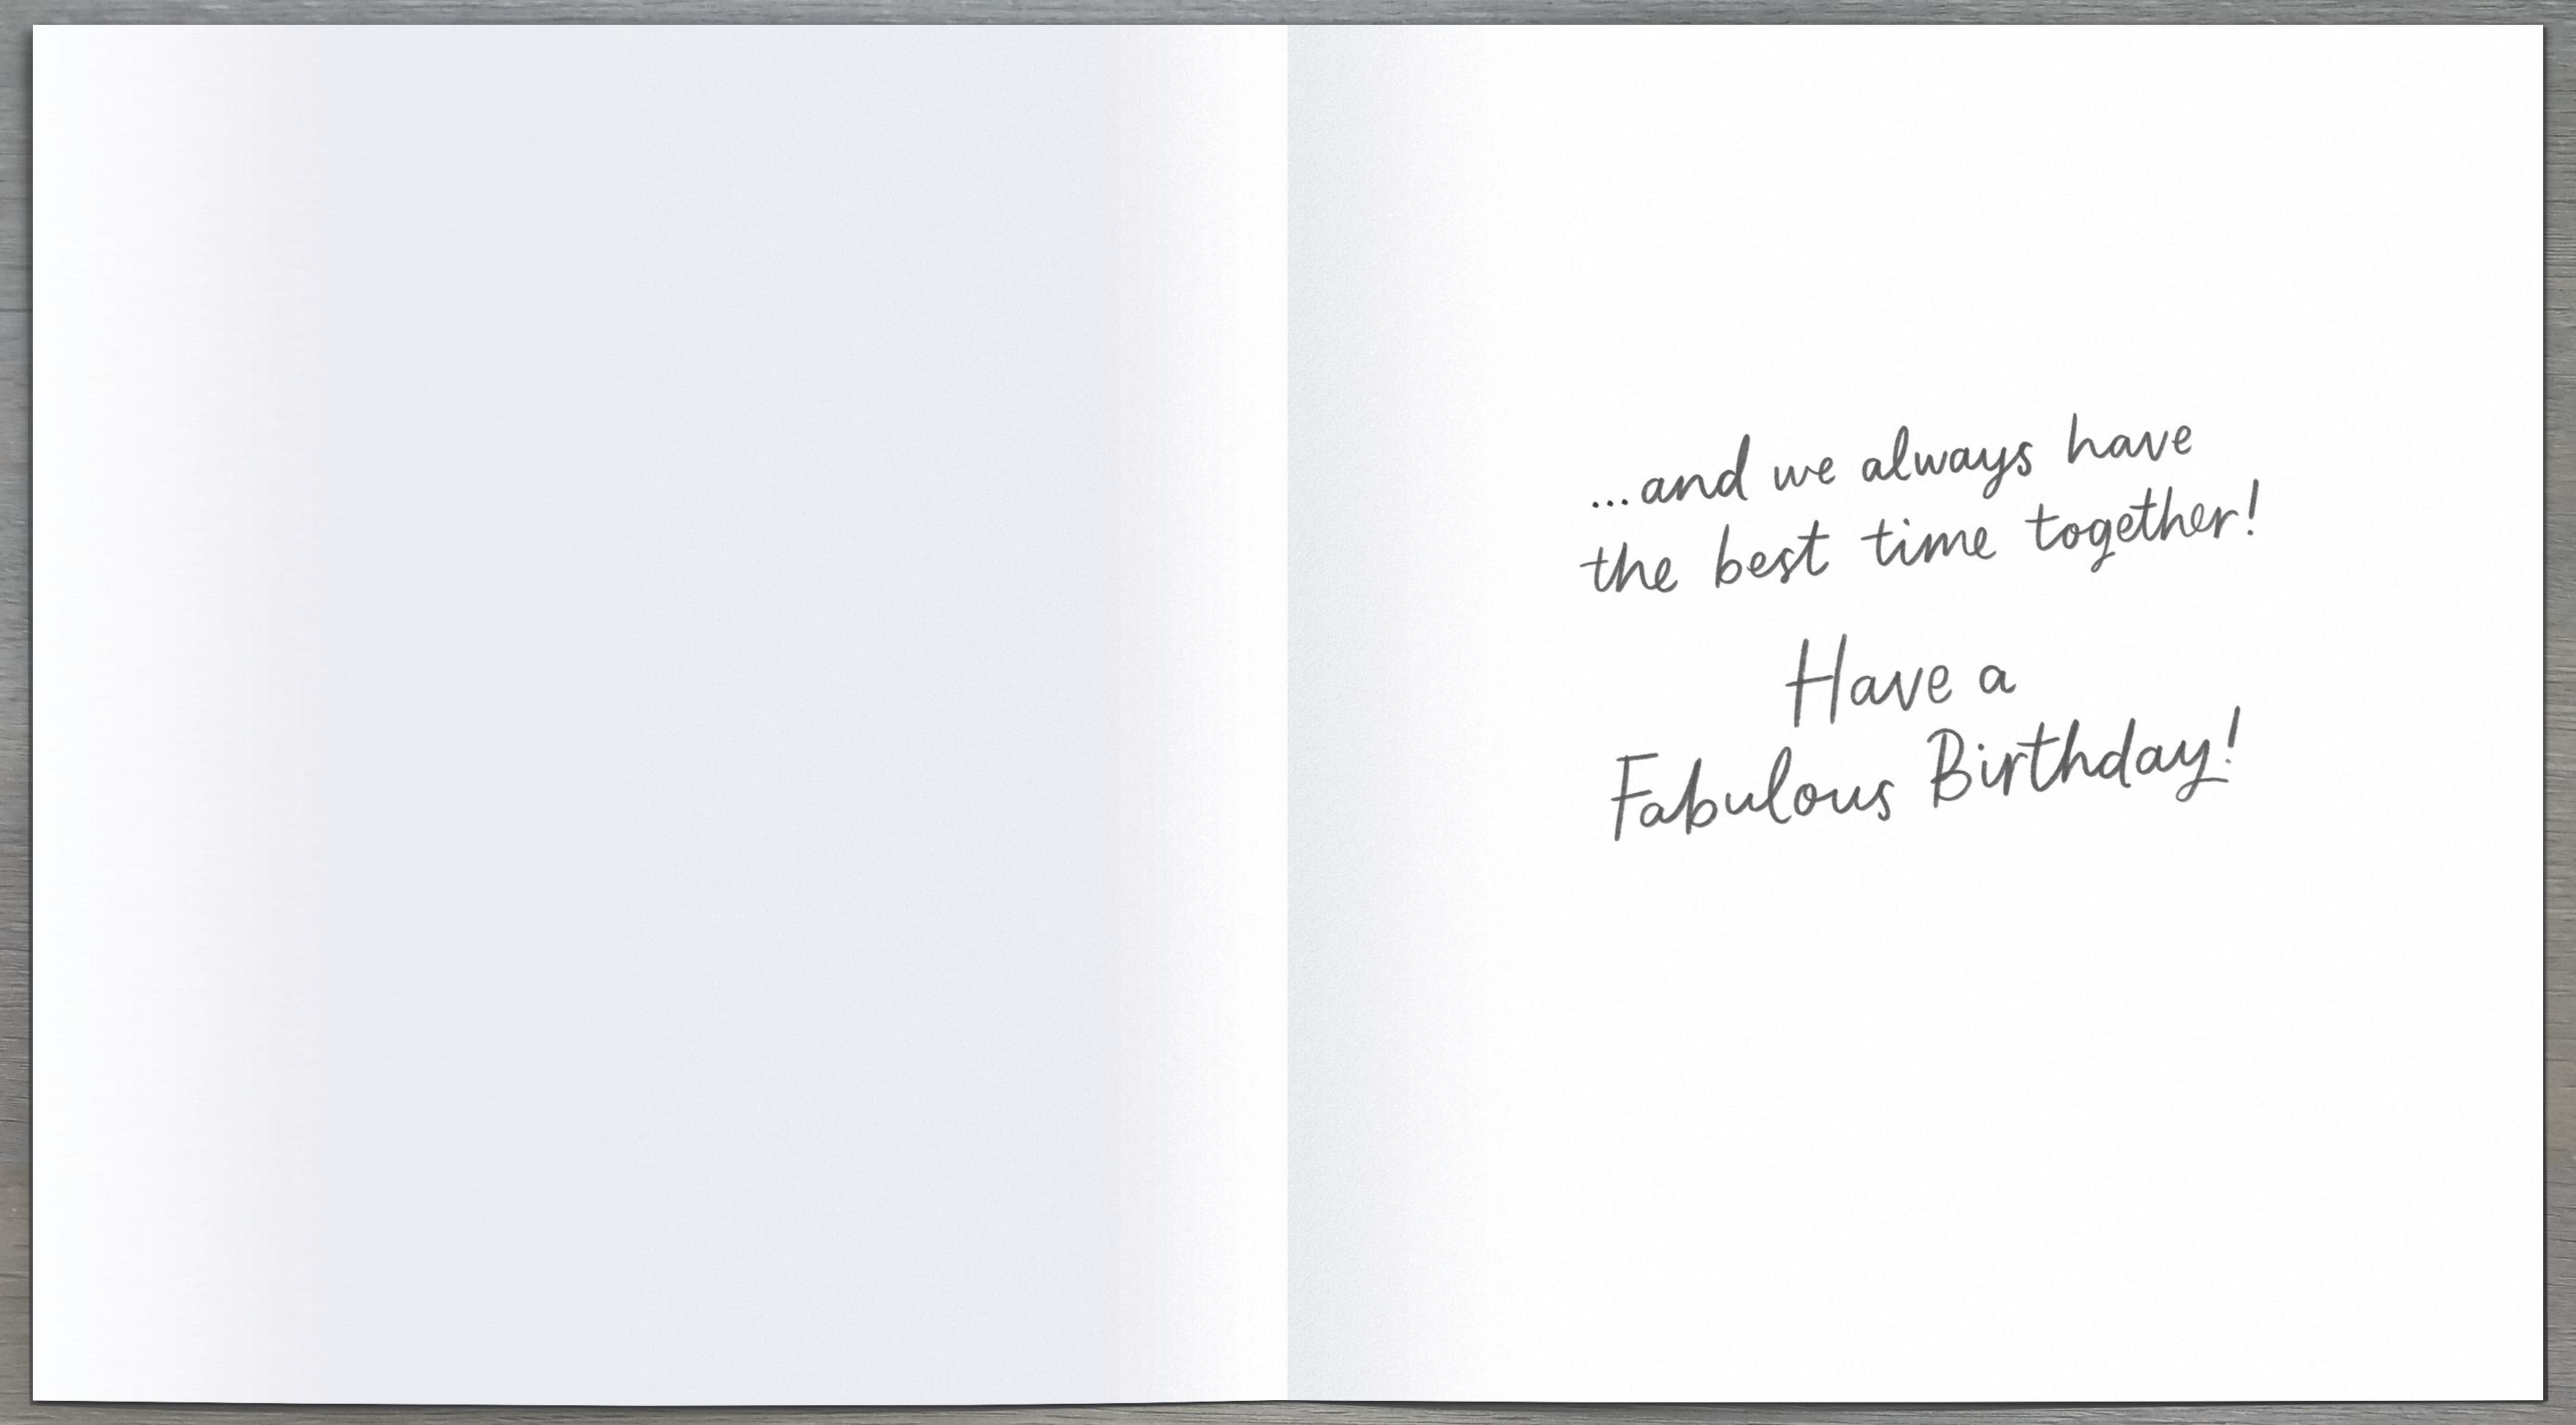 ...and we always have
the best time together!
Have a
Fabulous Birthday!